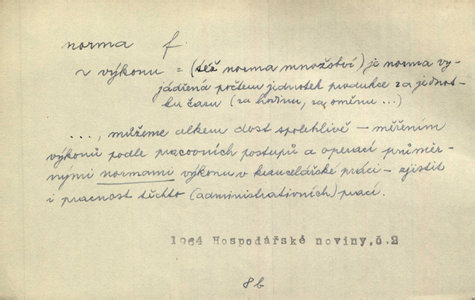 norma f.
~ výkonu = (též norma množství) je norma vy-
jádřená počtem jednotek produkce za jednot-
ku času (za hodinu, za směnu ...)
..., můžeme celkem dost spolehlivě – měřením
výkonů podle pracovních postupů a operací průměr-
nými normami výkonu v kancelářské práci – zjistit
i pracnost těchto (administrativních) prací.
1964 Hospodářské noviny, č.2
8b